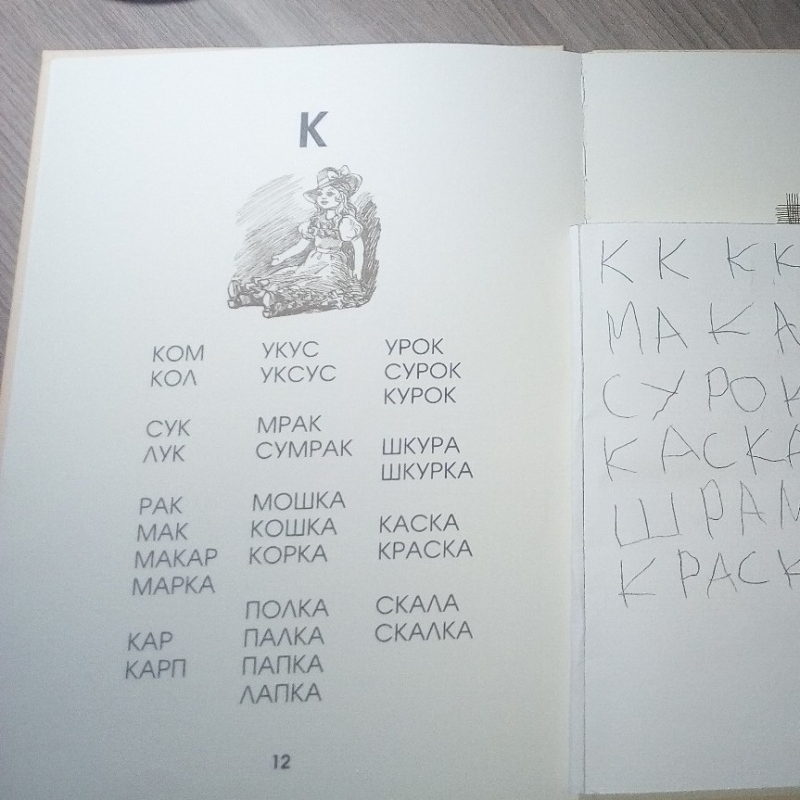 К
КОМ УКУС УРОК
КОЛ УКСУС СУРОК
КУРОК
СУК МРАК
ЛУК СУМРАК ШКУРА
ШКУРКА
РАК МОШКА
МАК КОШКА КАСКА
МАКАР КОРКА КРАСКА
МАРКА
ПОЛКА СКАЛА
КАР ПАЛКА СКАЛКА
КАРП ПАПКА
ЛАПКА
12
К К К К
МАКА
СУРОК
КАСКА
ШРАМ
КРАСК